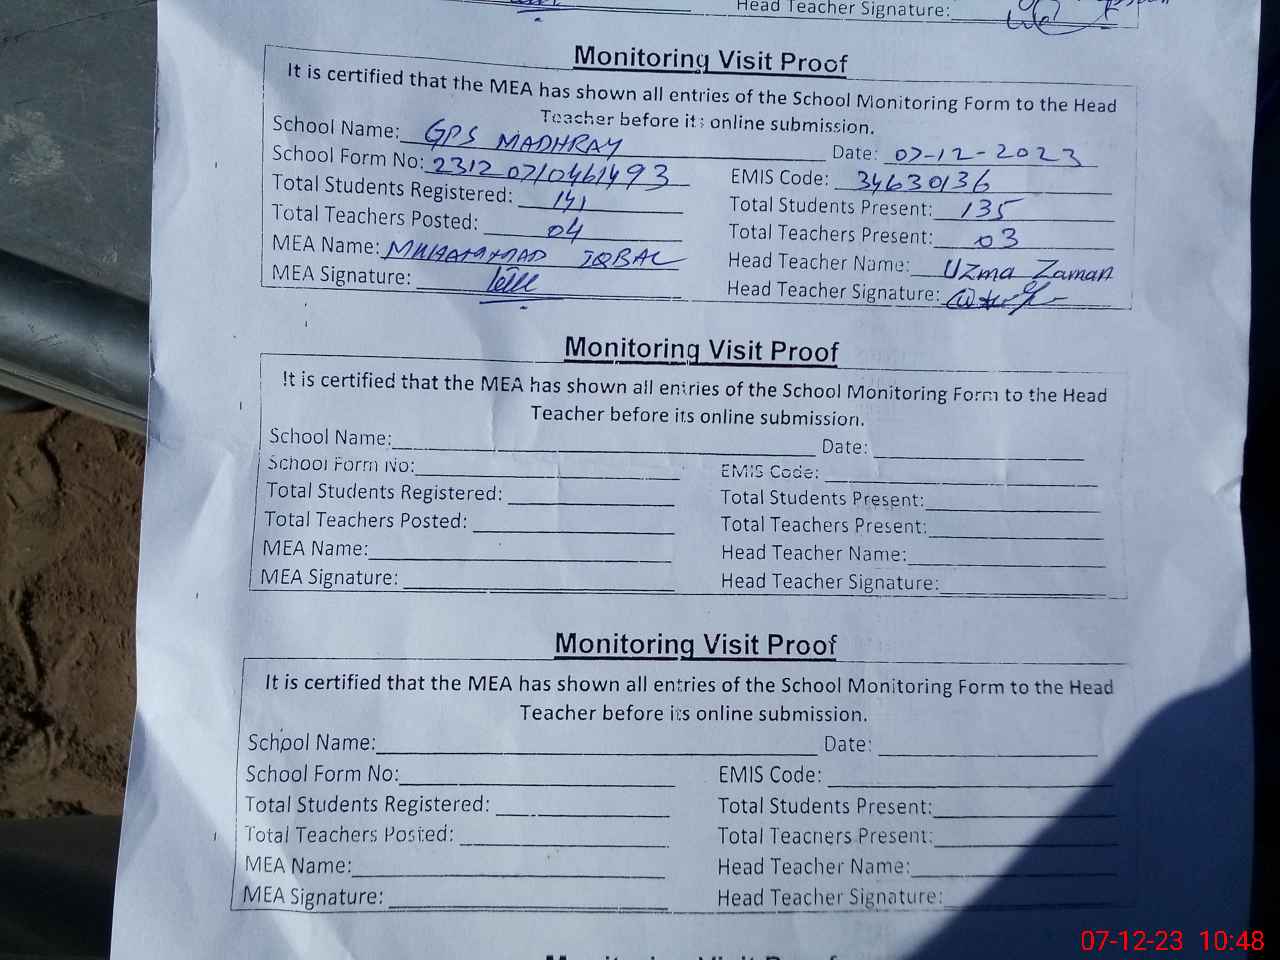 Head Teacher Signature:
Monitoring Visit Proof
It is certified that the MEA has shown all entries of the School Monitoring Form to the Head
Teacher before its online submission.
School Name: GPS MADHRAY Date: 07-12-2023
School Form No: 2312 0710461493 EMIS Code: 34630136
Total Students Registered: 141 Total Students Present: 135
Total Teachers Posted: 04 Total Teachers Present: 03
MEA Name: MUHAMMAD IQBAL Head Teacher Name: Uzma Zaman
MEA Signature: Head Teacher Signature:
Monitoring Visit Proof
It is certified that the MEA has shown all entries of the School Monitoring Form to the Head
Teacher before its online submission.
School Name: Date:
School Form No: EMIS Code:
Total Students Registered: Total Students Present:
Total Teachers Posted: Total Teachers Present:
MEA Name: Head Teacher Name:
MEA Signature: Head Teacher Signature:
Monitoring Visit Proof
It is certified that the MEA has shown all entries of the School Monitoring Form to the Head
Teacher before its online submission.
School Name: Date:
School Form No: EMIS Code:
Total Students Registered: Total Students Present:
Total Teachers Posted: Total Teachers Present:
MEA Name: Head Teacher Name:
MEA Signature: Head Teacher Signature:
07-12-23 10:48